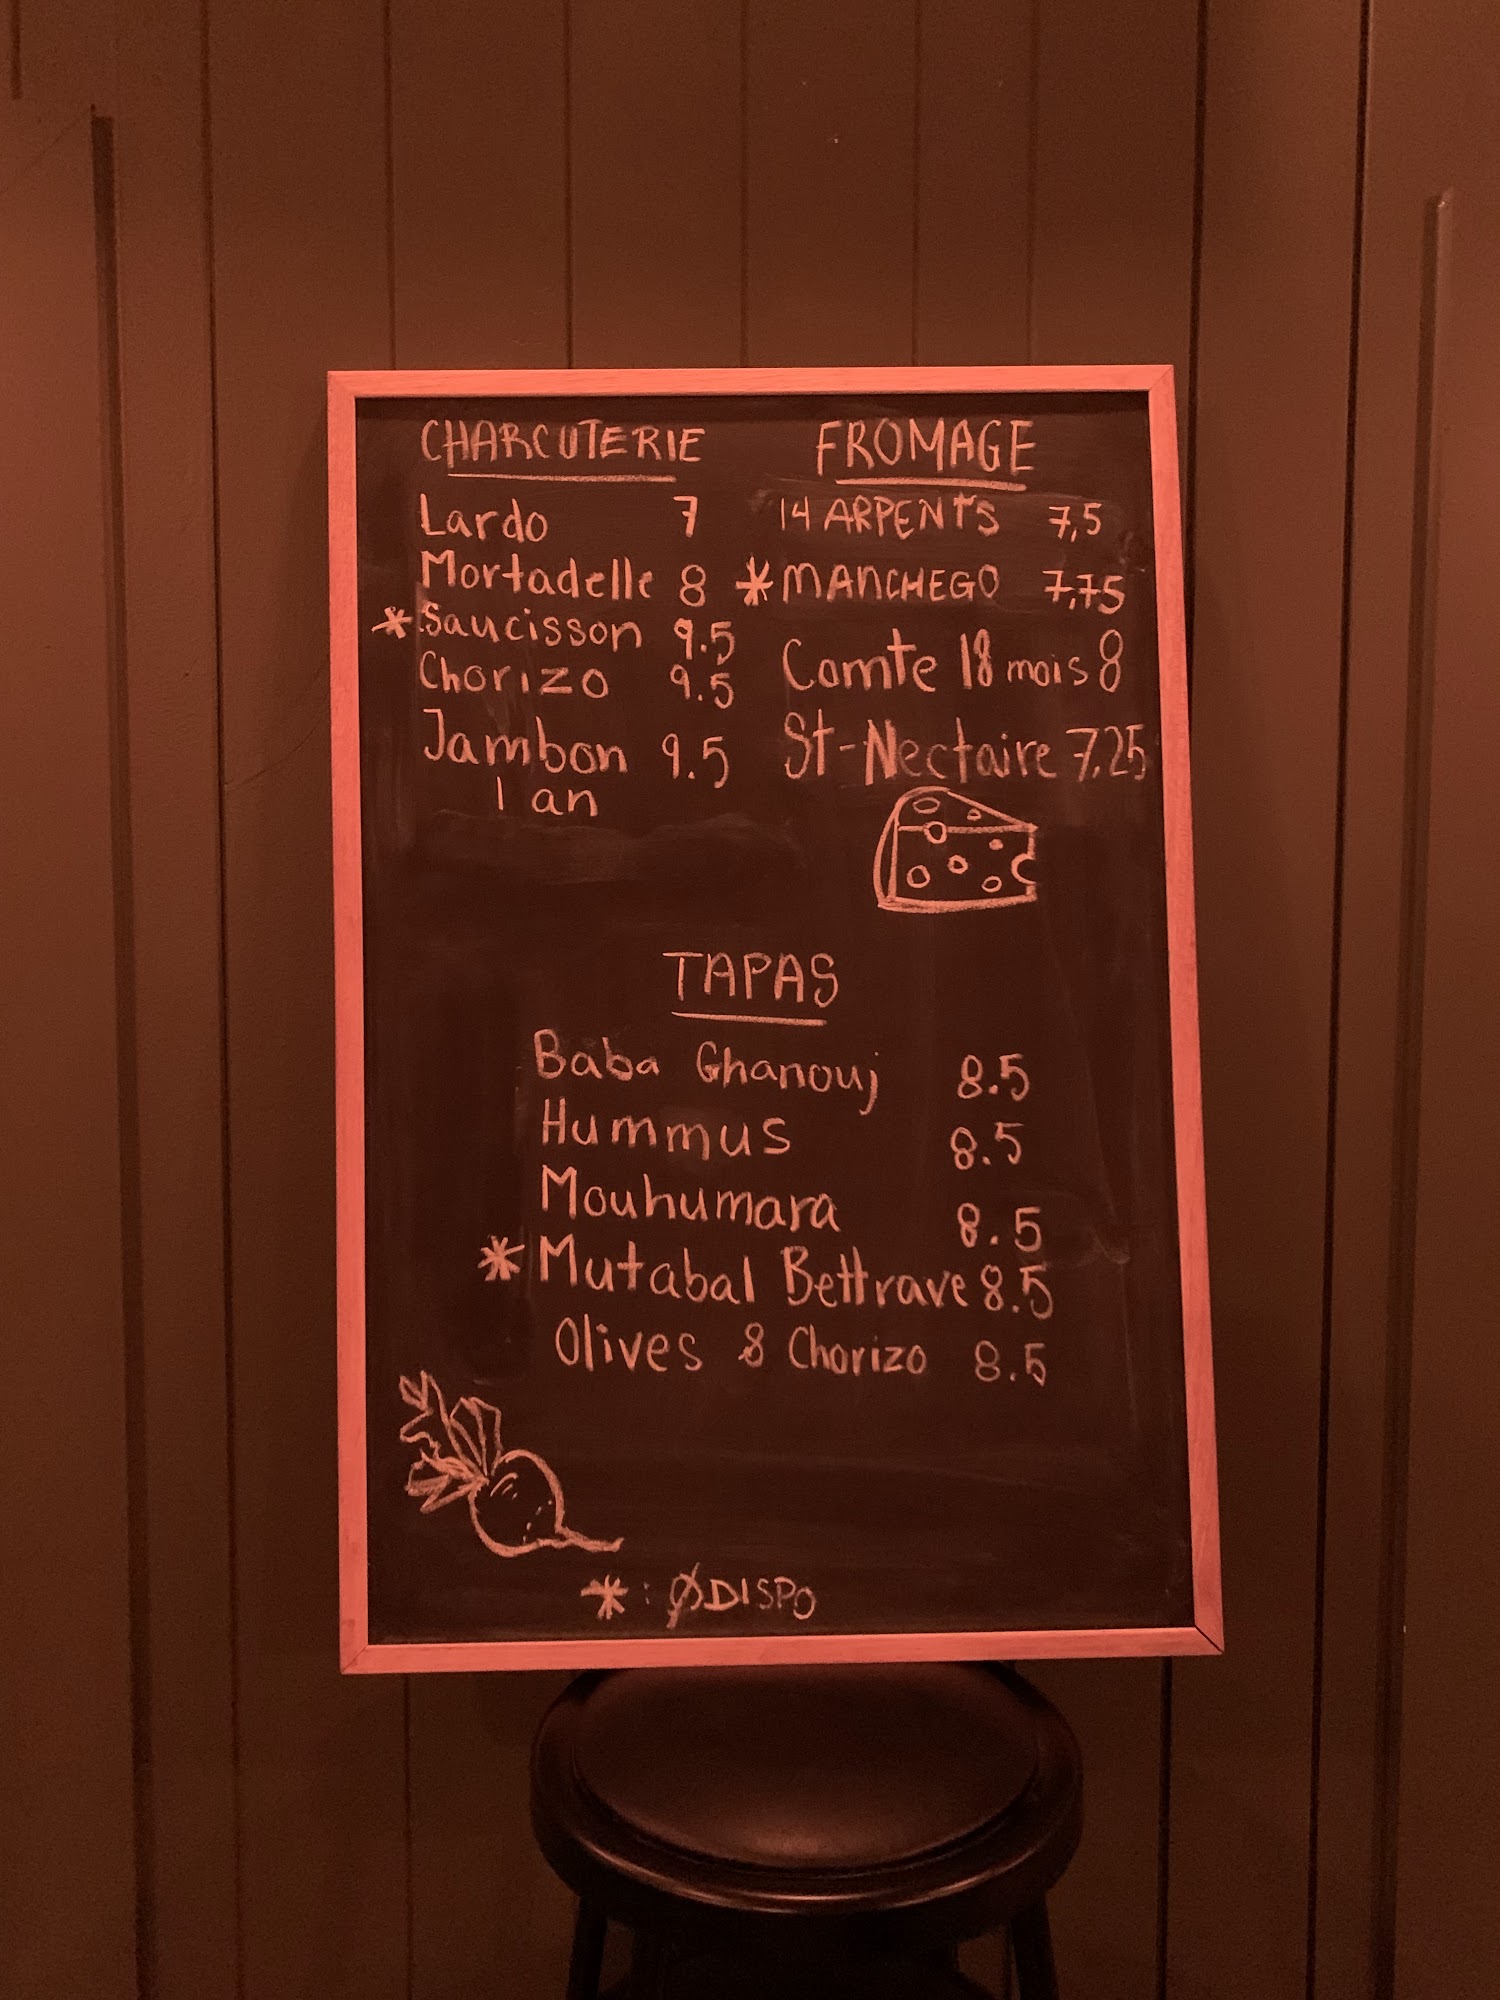 CHARCUTERIE
Lardo 7
Mortadelle 8
*Saucisson 9.5
Chorizo 9.5
Jambon 9.5
1 an
FROMAGE
14 ARPENTS 7,5
*MANCHEGO 7,75
Comte 18 mois 8
St-Nectaire 7,25
TAPAS
Baba Ghanouj 8.5
Hummus 8.5
Mouhumara 8.5
*Mutabal Bettrave 8.5
Olives & Chorizo 8.5
* : ØDISPO